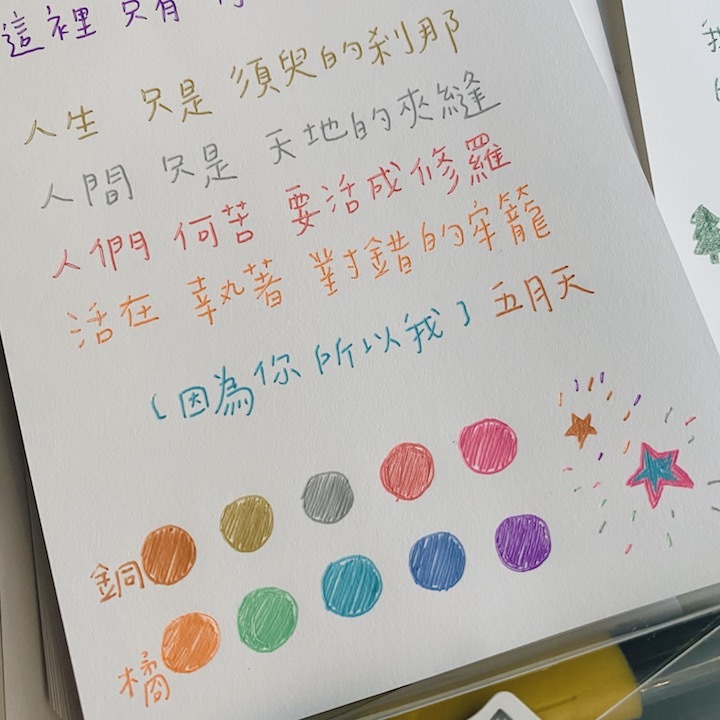 這裡 只有
人生 只是 須臾的剎那
人間 只是 天地的夾縫
人們 何苦 要活成修羅
活在 執著 對錯的牢籠
〔因為你所以我〕五月天
銅
橘